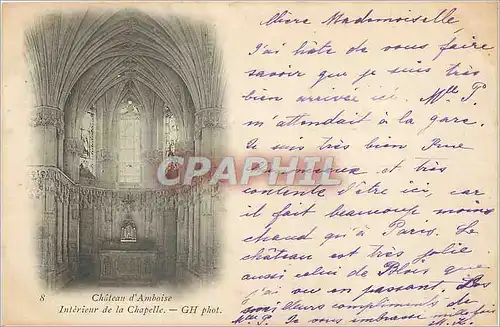 Chère Mademoiselle
J'ai hâte de vous faire
savoir que je suis très
bien arrivée ici. Mlle P.
m'attendait à la gare.
Je suis très bien
et très
contente d'être ici, car
il fait beaucoup moins
chaud qu'à Paris. Le
château est très jolie
aussi celui de Blois que
j'ai vu en passant. Les
meilleurs compliments de
Mlle P. Je vous embrasse mille fois
CPARHAMA
8 Château d'Amboise
Intérieur de la Chapelle. — GH phot.